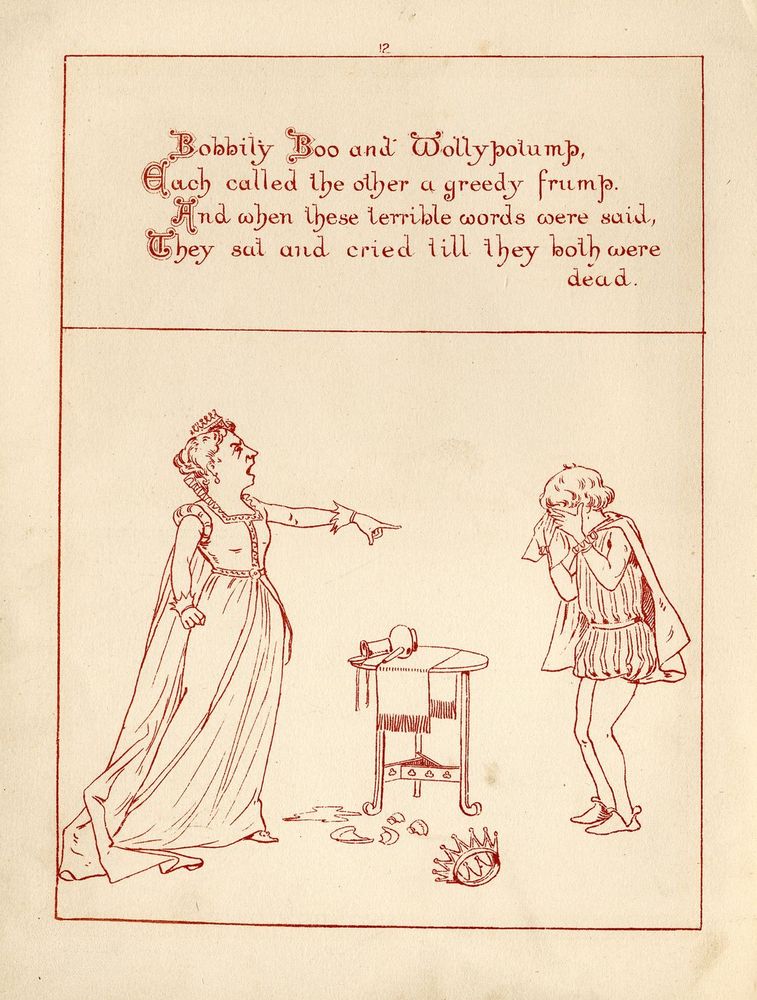 12
Bobbily Boo and Wollypotump,
Each called the other a greedy frump.
And when these terrible words were said,
They sat and cried till they both were
dead.